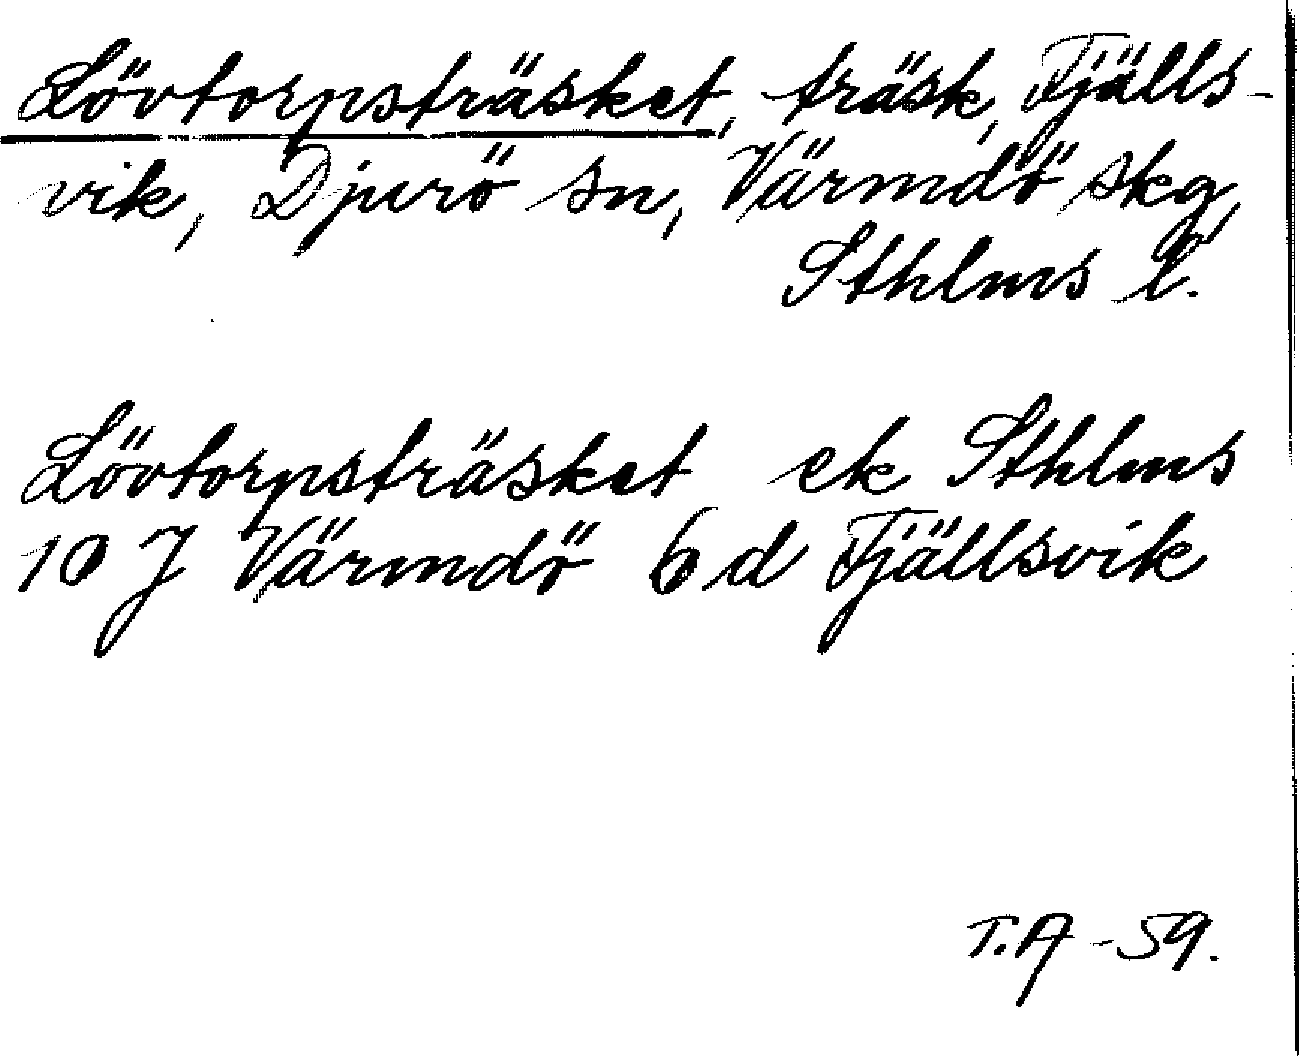 Lövtorpsträsket, träsk, Fjälls-
vik, Djurö sn, Värmdö skg,
Sthlms l.
Lövtorpsträsket ek Sthlms
10 J Värmdö 6 d Fjällsvik
T.A -59.